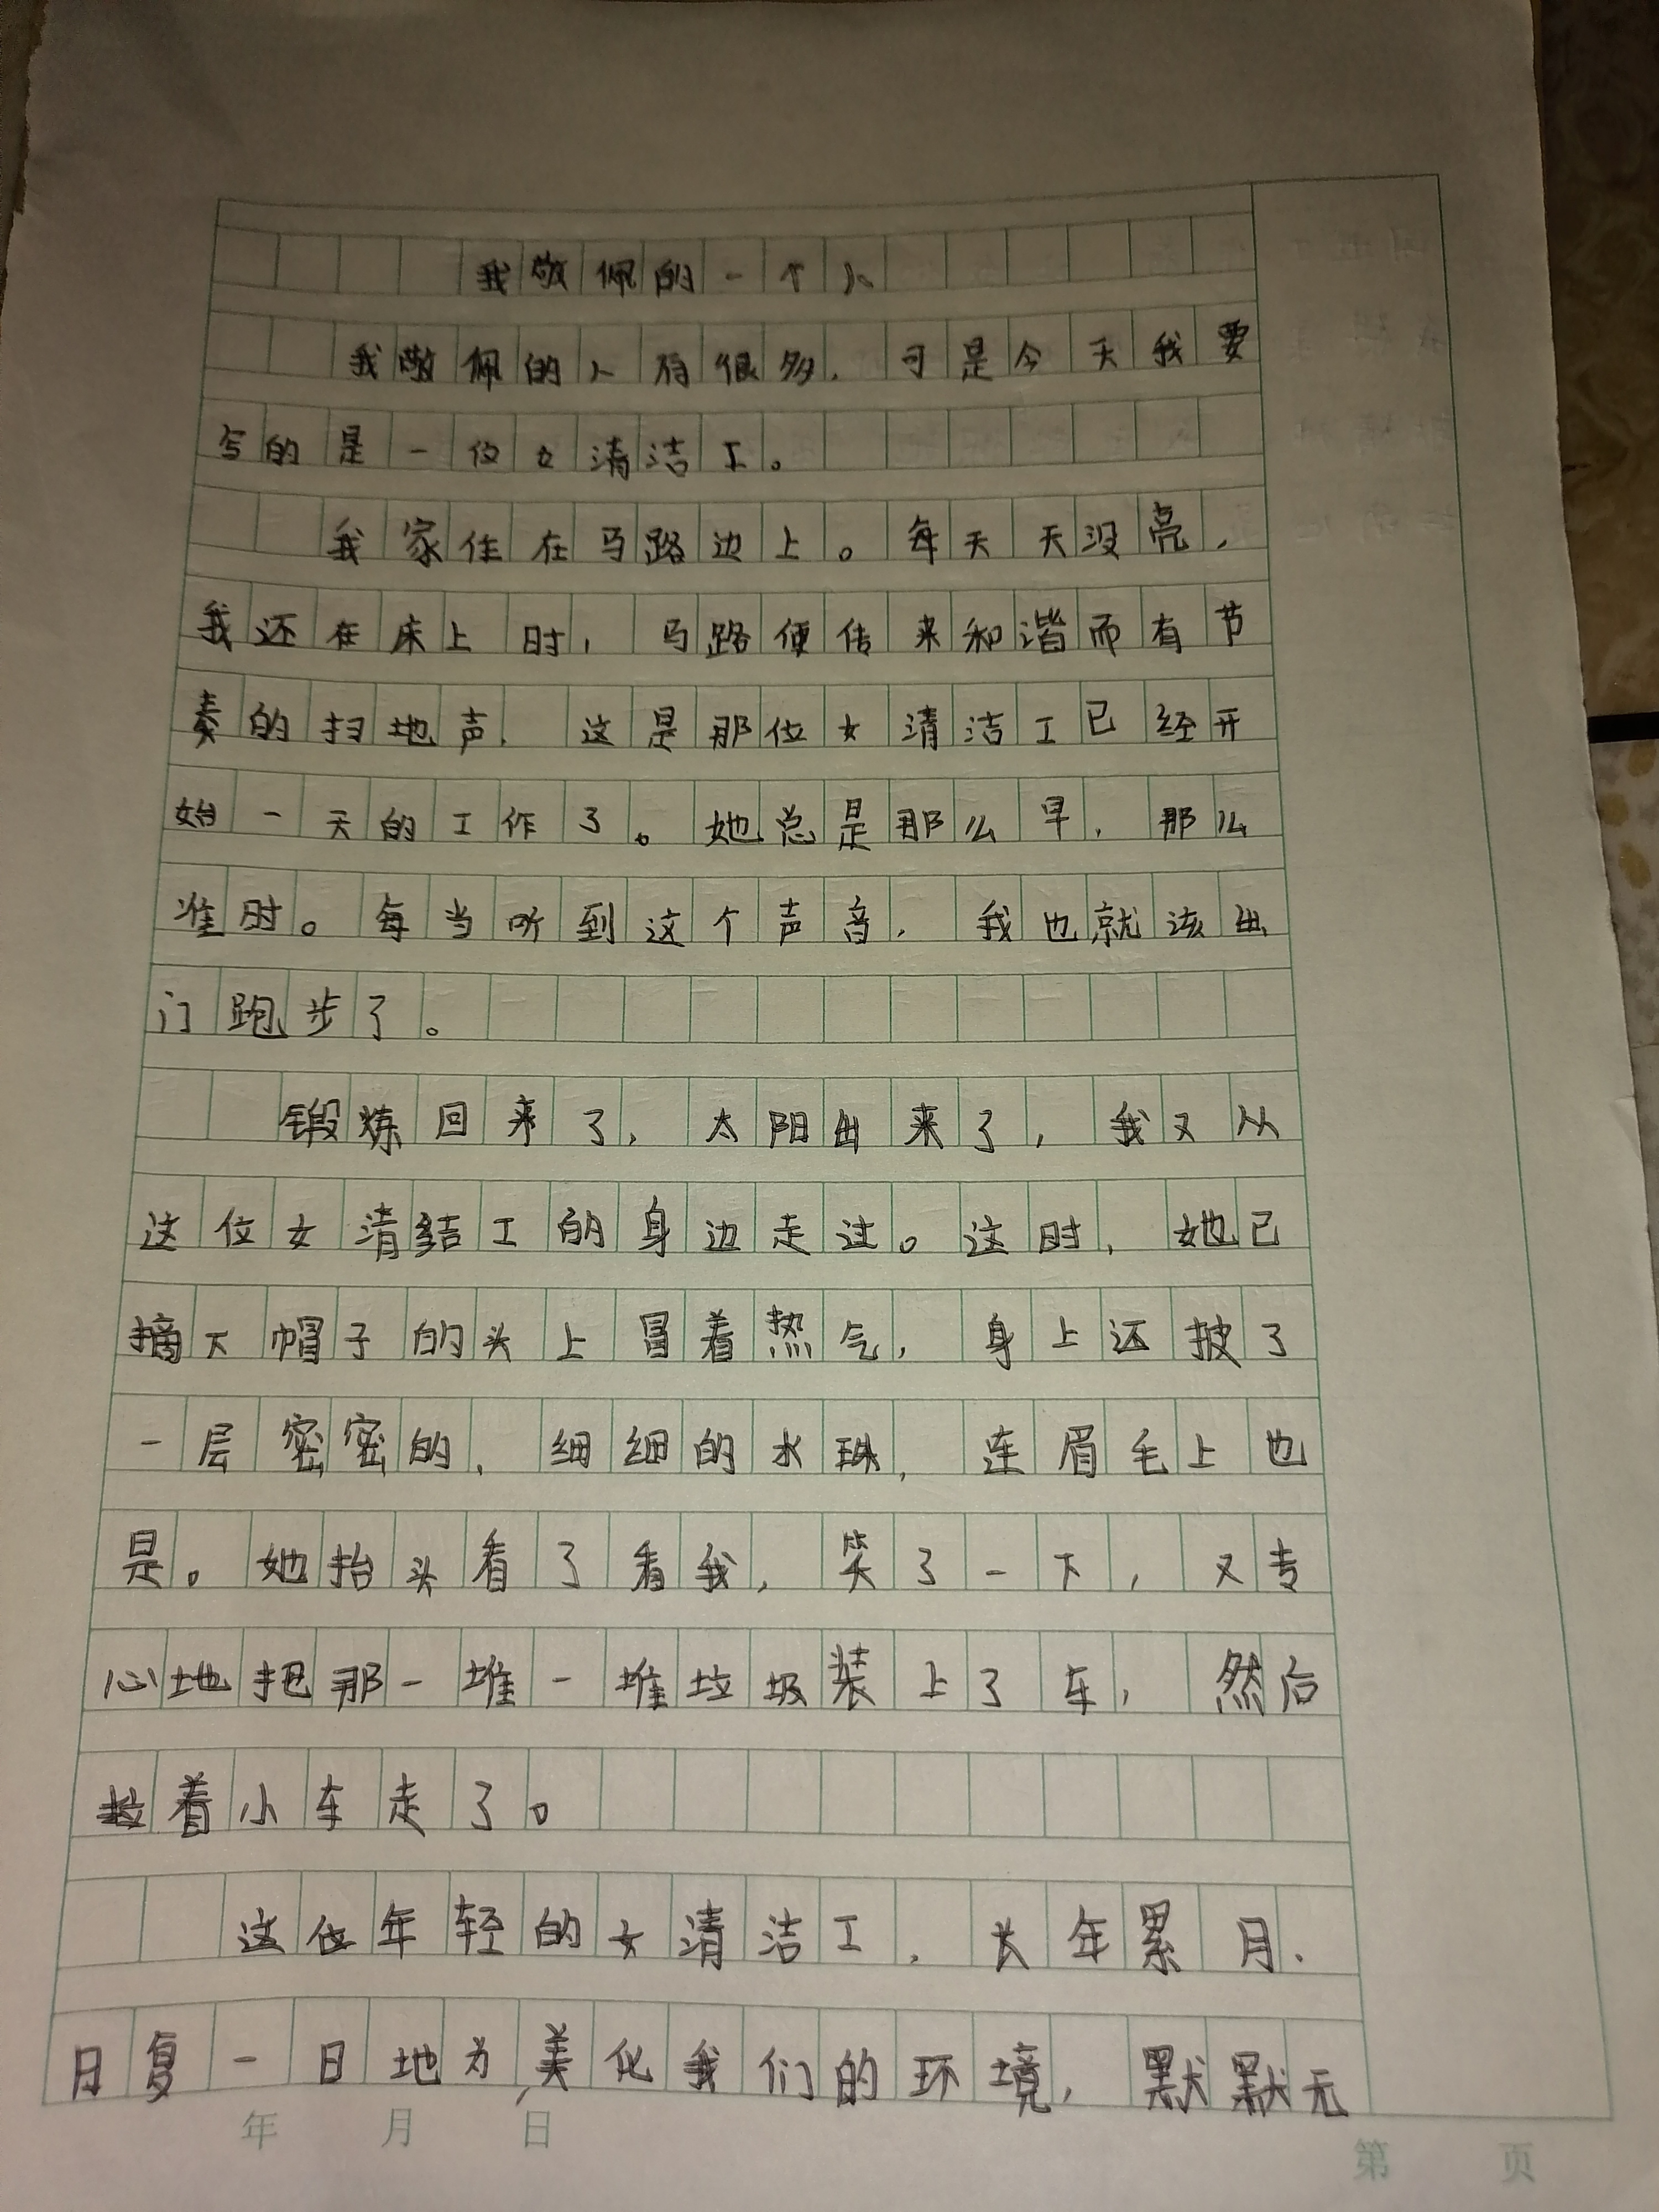 我敬佩的一个人
我敬佩的人有很多，可是今天我要
写的是一位女清洁工。
我家住在马路边上。每天天没亮，
我还在床上时，马路便传来和谐而有节
奏的扫地声，这是那位女清洁工已经开
始一天的工作了。她总是那么早，那么
准时。每当听到这个声音，我也就该出
门跑步了。
锻炼回来了，太阳出来了，我又从
这位女清结工的身边走过。这时，她已
摘下帽子的头上冒着热气，身上还披了
一层密密的、细细的水珠，连眉毛上也
是。她抬头看了看我，笑了一下，又专
心地把那一堆一堆垃圾装上了车，然后
拉着小车走了。
这位年轻的女清洁工，长年累月，
日复一日地为美化我们的环境，默默无
年 月 日
第 页